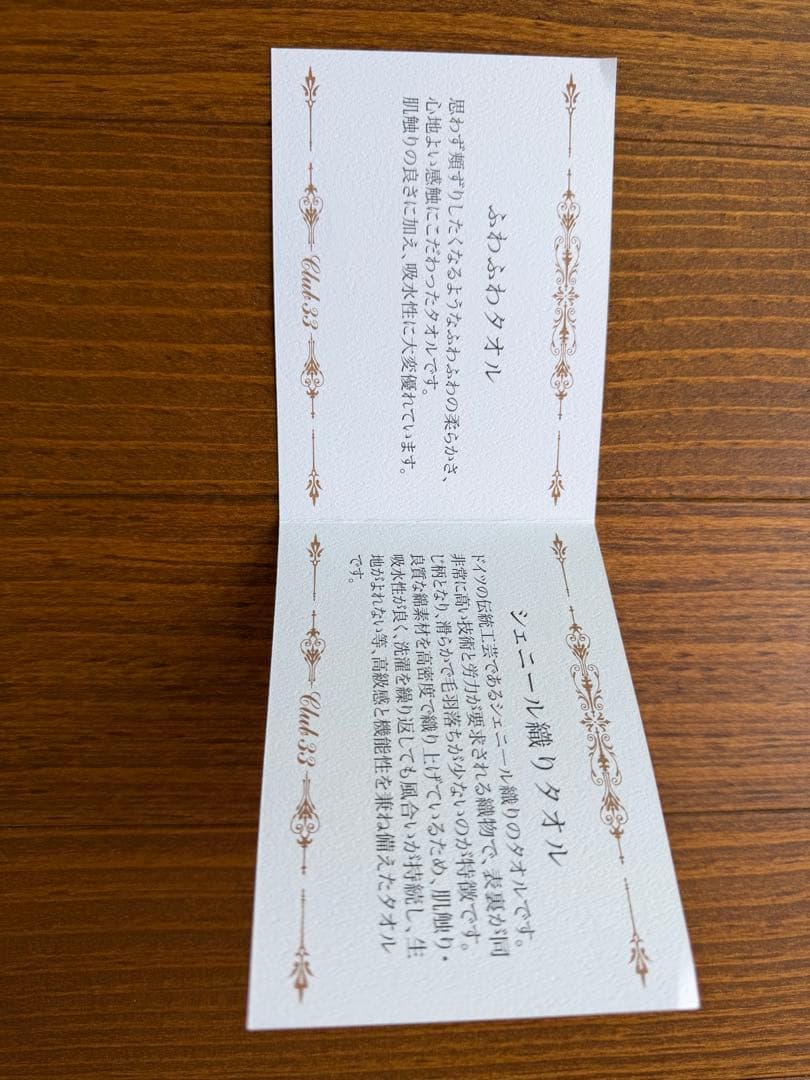 ふわふわタオル
思わず頬ずりしたくなるようなふわふわの柔らかさ、
心地よい感触にこだわったタオルです。
肌触りの良さに加え、吸水性に大変優れています。
Club 33
シェニール織りタオル
ドイツの伝統工芸であるシェニール織りのタオルです。
非常に高い技術と労力が要求される織物で、表裏が同
じ柄となり、滑らかで毛羽落ちが少ないのが特徴です。
良質な綿素材を高密度で織り上げているため、肌触り・
吸水性が良く、洗濯を繰り返しても風合いが持続し、生
地がよれない等、高級感と機能性を兼ね備えたタオル
です。
Club 33